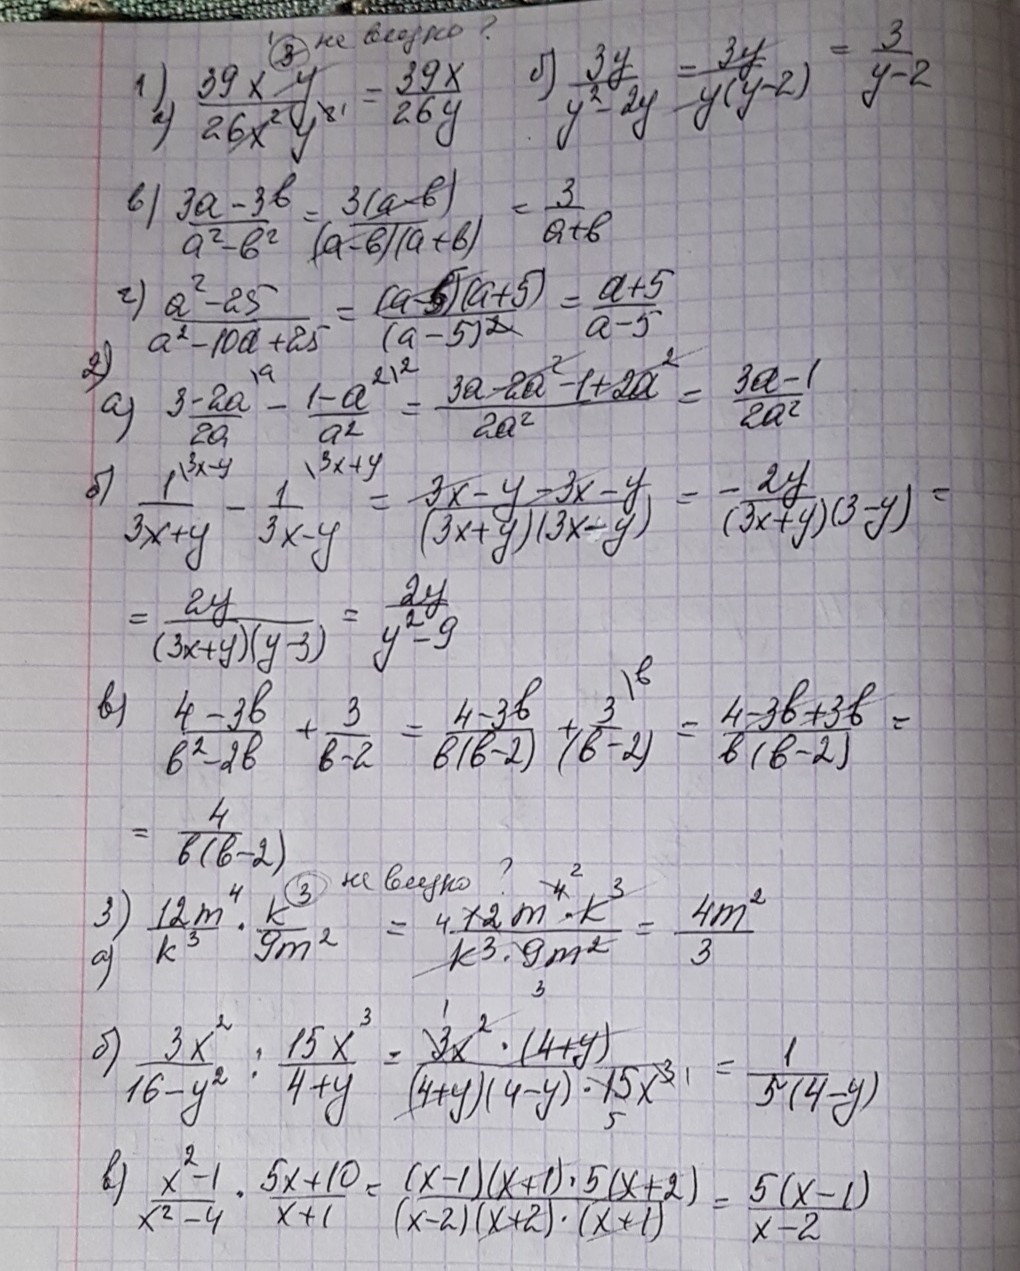 ③ не видно?
1) а) 39x³y / 26x²y² = 39x / 26y б) 3y / y²-2y = 3y / y(y-2) = 3 / y-2
в) 3a-3b / a²-b² = 3(a-b) / (a-b)(a+b) = 3 / a+b
г) a²-25 / a²-10a+25 = (a-5)(a+5) / (a-5)² = a+5 / a-5
2)
а) 3-2a / 2a \a - 1-a² / a² \2 = 3a-2a²-1+2a² / 2a² = 3a-1 / 2a²
б) 1 / 3x+y \3x-y - 1 / 3x-y \3x+y = 3x-y-3x-y / (3x+y)(3x-y) = - 2y / (3x+y)(3-y) =
= 2y / (3x+y)(y-3) = 2y / y²-9
в) 4-3b / b²-2b + 3 / b-2 = 4-3b / b(b-2) + 3 / (b-2) \b = 4-3b+3b / b(b-2) =
= 4 / b(b-2)
③ не видно?
3) а) 12m⁴ / k³ · k³ / 9m² = 4 12m⁴ ² · k³ / k³ · 9m² 3 = 4m² / 3
б) 3x² / 16-y² : 15x³ / 4+y = 1 3x² · (4+y) / (4+y)(4-y) · 15x³ 1 5 = 1 / 5(4-y)
в) x²-1 / x²-4 · 5x+10 / x+1 = (x-1)(x+1) · 5(x+2) / (x-2)(x+2) · (x+1) = 5(x-1) / x-2